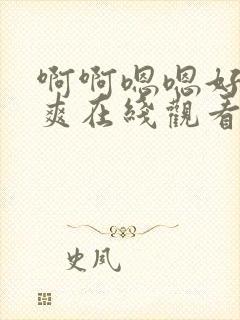 啊啊嗯嗯好
爽在线觀看
史夙